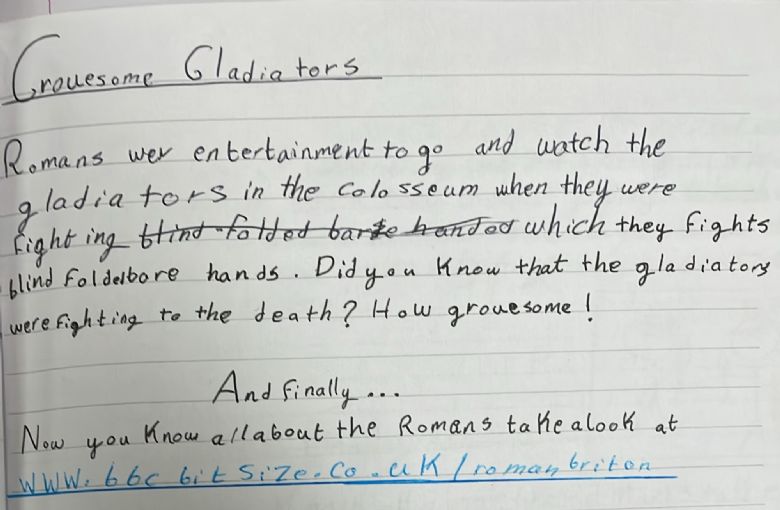 Grouesome Gladiators
Romans wer entertainment to go and watch the
gladiators in the Colosseum when they were
fighting blind-folded barte handed which they fights
blind folderbare hands. Did you know that the gladiators
were fighting to the death? How grouesome!
And finally...
Now you know all about the Romans take a look at
www.bbc bit size.co.uk/romanbriton